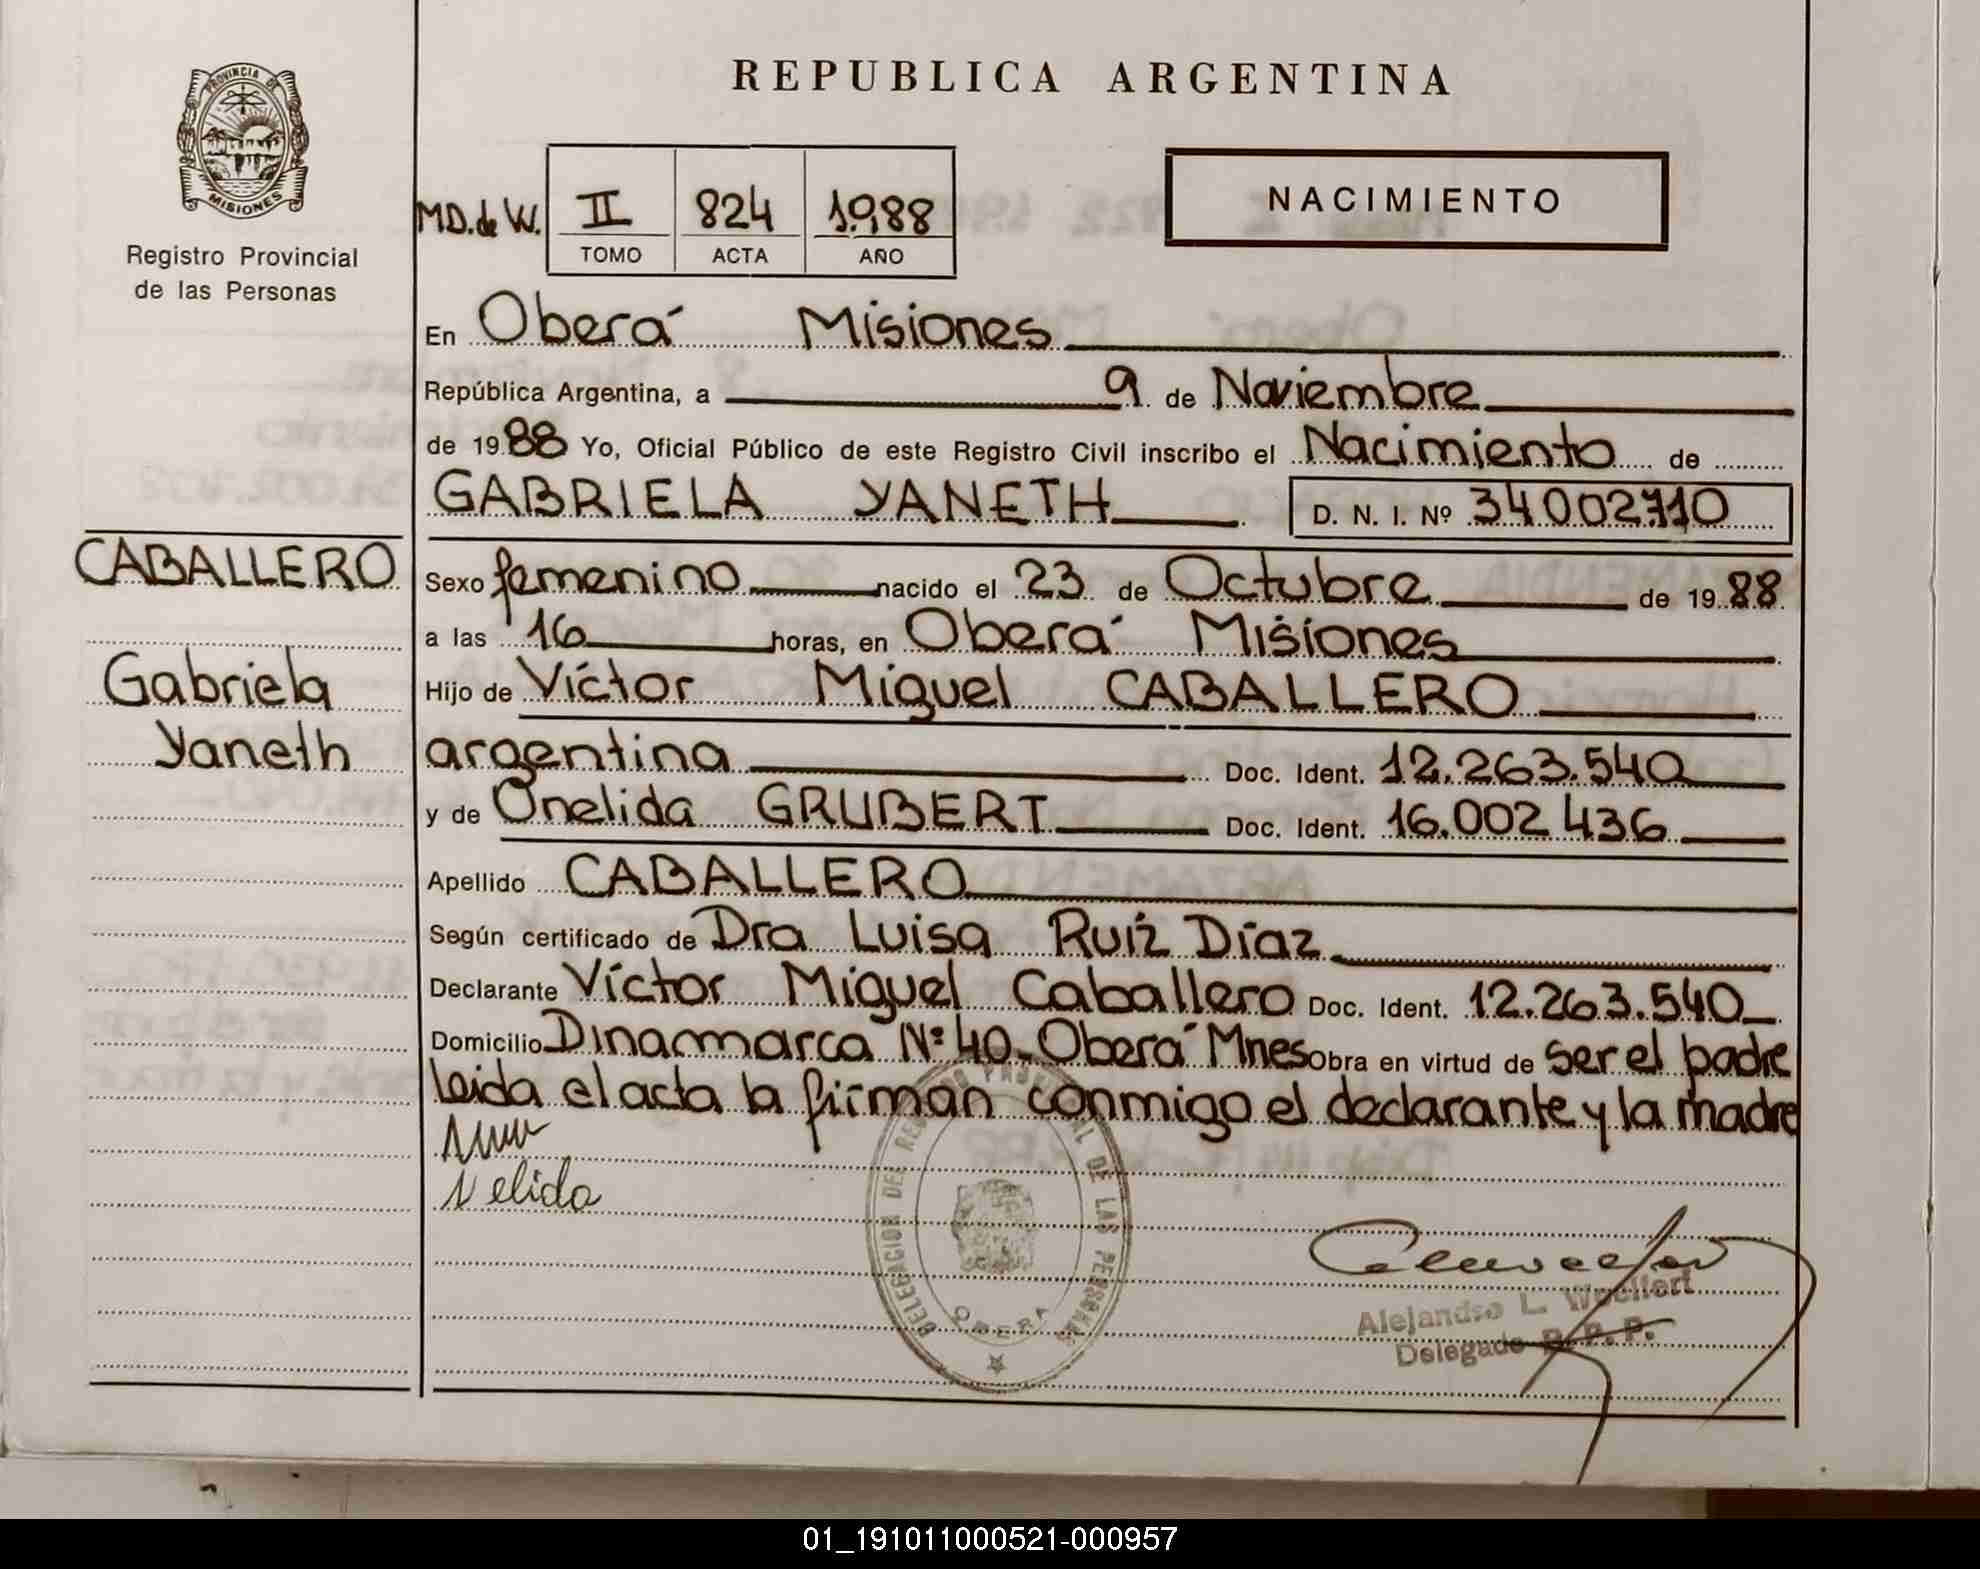 REPUBLICA ARGENTINA
PROVINCIA DE
MISIONES
Registro Provincial
de las Personas
NACIMIENTO
MD. de W. II 824 1988
TOMO ACTA AÑO
En Oberá Misiones
República Argentina, a 9 de Noviembre
de 1988 Yo, Oficial Público de este Registro Civil inscribo el Nacimiento de
GABRIELA YANETH D. N. I. Nº 34002710
CABALLERO
Gabriela
Yaneth
Sexo femenino nacido el 23 de Octubre de 1988
a las 16 horas, en Oberá Misiones
Hijo de Víctor Miguel CABALLERO
argentina Doc. Ident. 12.263.540
y de Onelida GRUBERT Doc. Ident. 16.002436
Apellido CABALLERO
Según certificado de Dra Luisa Ruiz Díaz
Declarante Víctor Miguel Caballero Doc. Ident. 12.263.540
Domicilio Dinamarca Nº 40- Oberá Mnes Obra en virtud de ser el padre
leida el acta la firman conmigo el declarante y la madre
DELEGACION DEL REGISTRO PROVINCIAL DE LAS PERSONAS
OBERA
Alejandro L. Woelfert
Delegado R. P. P.
01_191011000521-000957